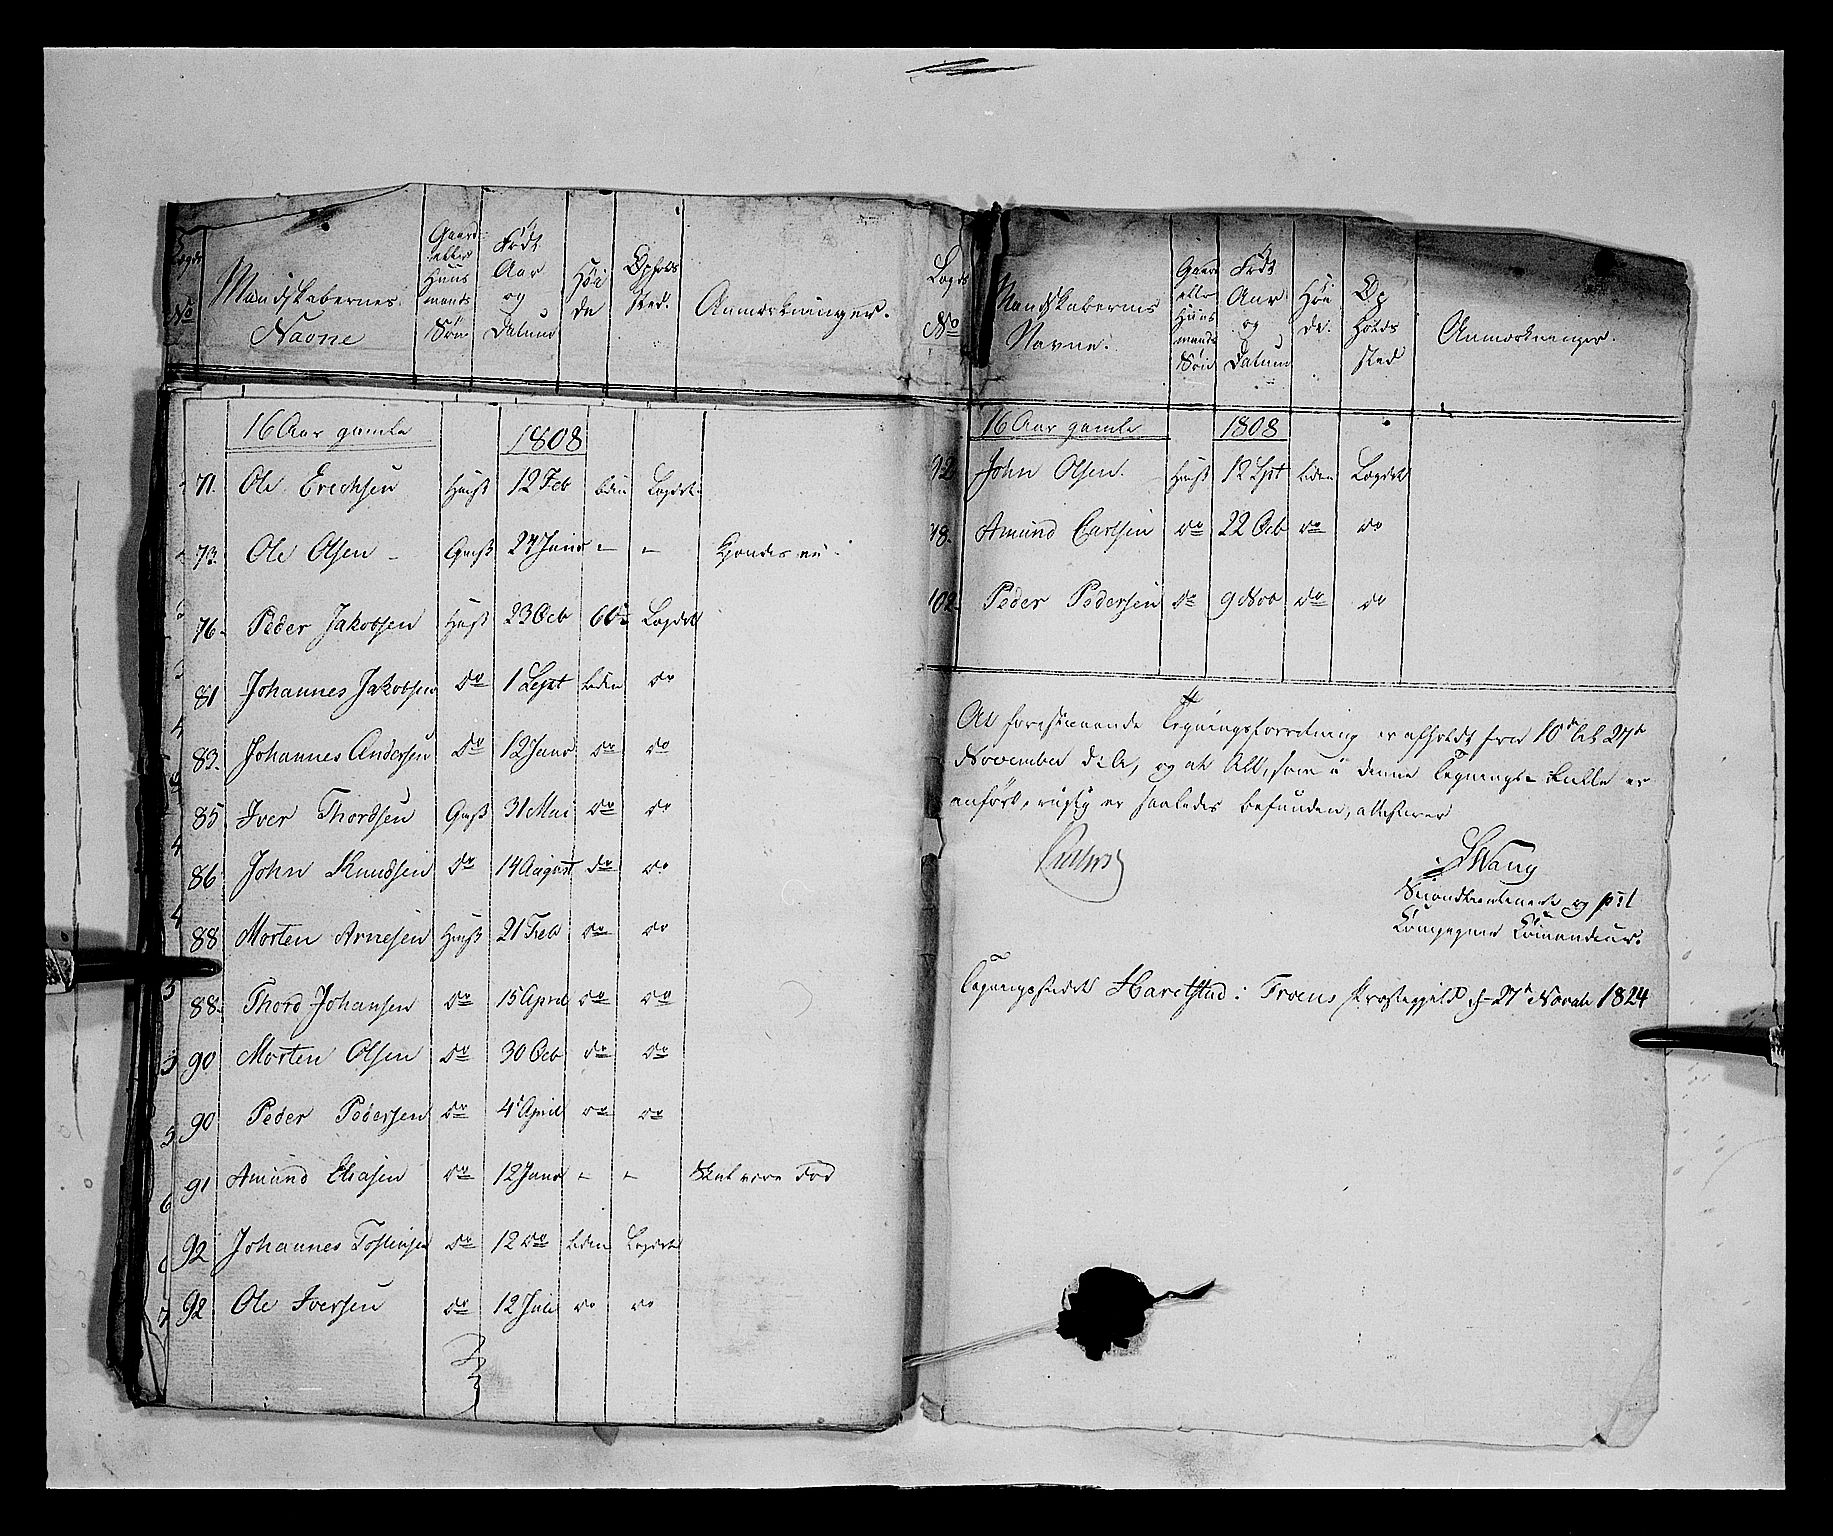 Lægds No
Mandskabernes Navne
Gaard eller Huus mands Søn
Født Aar og Datum
Høi de
Opholds sted.
Anmærkninger.
16 Aar gamle 1808
71. Ole Erichsen Huusß 12 Feb liden Lægdet
73. Ole Olsen - Gmß 24 Janr - -
76. Peder Jakobsen Huusß 23 Octb 60 Lægdet
81 Johannes Jakobsen do 1 Sept liden do
83. Johannes Andersen do 12 Janr do do
85 Iver Thordsen Gmß 31 Mai do do
86 John Knudsen do 14 August do do
88 Morten Arnesen Huusß 21 Feb do do
88. Thord Johansen do 15 April do do
90 Morten Olsen do 30 Octb do do
90 Peder Pedersen do 4 April do do
91 Amund Eliasen do 12 Janr - - Skal være Død
92 Johannes Tostensen do 12 do liden Lægdet
92. Ole Iversen do 12 Juli do do
Lægds No
Mandskabernes Navne.
Gaard eller Huus mands Søn
Født Aar og Datum
Høi de.
Op holds sted
Anmærkninger.
16 Aar gamle 1808
92 John Olsen. Huusß 12 Sept liden Lægdet
98. Amund Carlsen do 22 Octb do do
102. Peder Pedersen do 9 Nov do do
At forestaaende Tegningsforretning er afholdt fra 10de til 27de
November d: A, og at Alt, som i denne Tegnings-Rulle er
anført, rigtig er saaledes befunden, attesterer
Wang
Secondlieutenant og p: t
Compagnie Commandeur.
Tegningsstedet Haretstad i Froens Præstegjeld d. 27de Novbr 1824